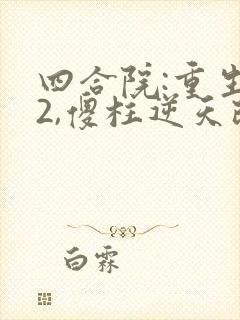 四合院:重生
2,傻柱逆天改
白霖